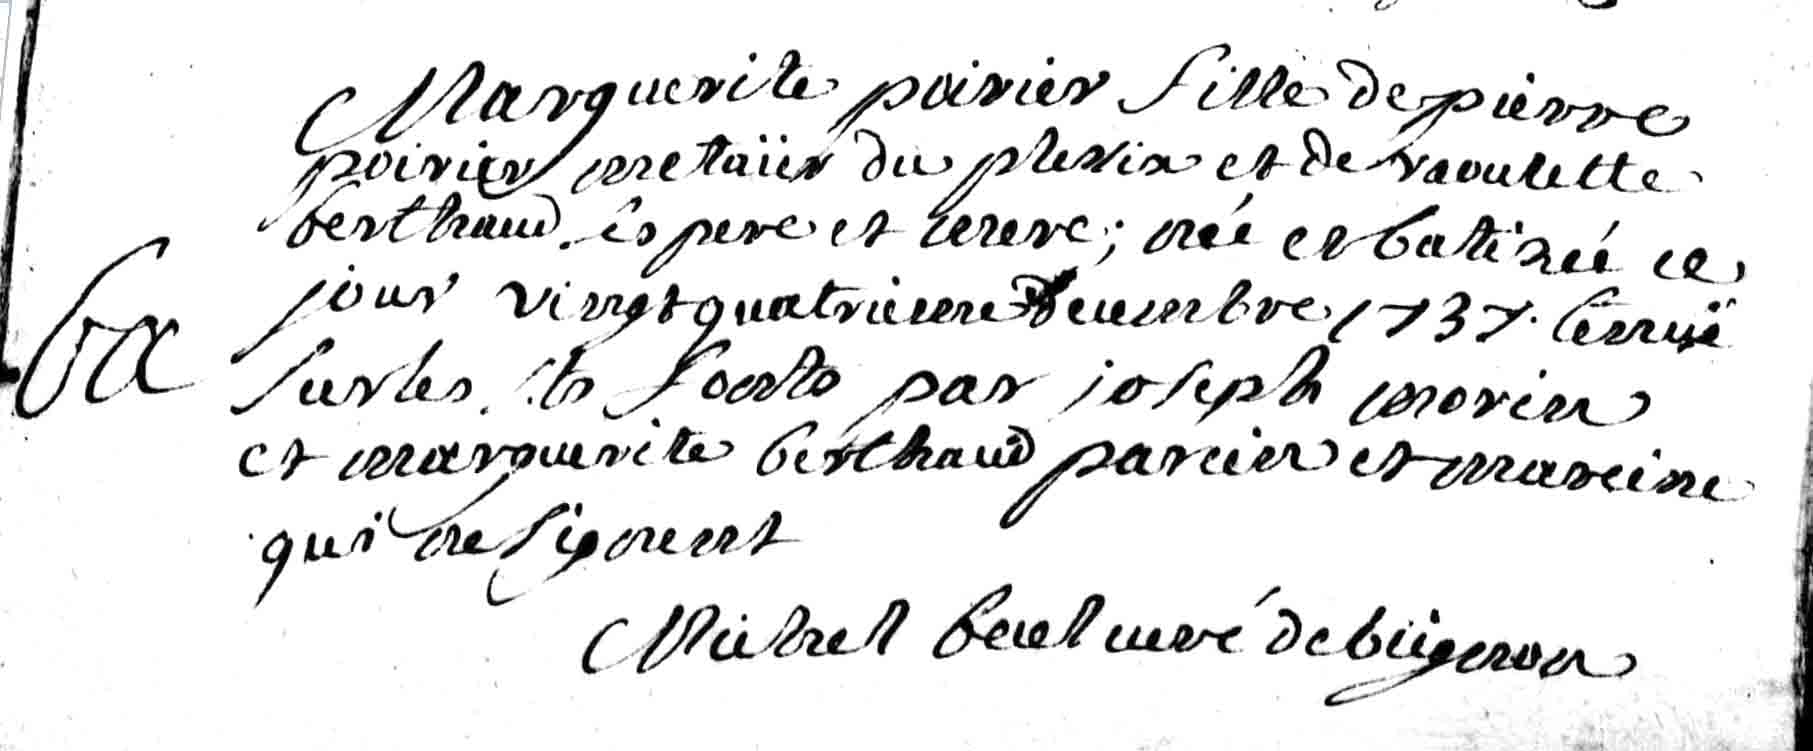 Marguerite poirier fille de pierre
poirier metaïer du plessix et de raoulette
berthaud. ses pere et mere; née et batizée ce
Ba
jour vingt quatrieme decembre 1737. tenuë
sur les sts fonts par joseph morin
et marguerite berthaud parein et mareine
qui ne signent
Michel curé de bugnon